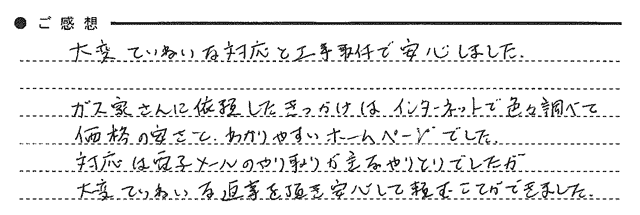 ● ご感想
大変ていねいな対応と工事取付で安心しました。
ガス家さんに依頼したきっかけはインターネットで色々調べて
価格の安さと、わかりやすいホームページでした。
対応は電子メールのやり取りが主なやりとりでしたが
大変ていねいな返事を頂き安心して頼むことができました。